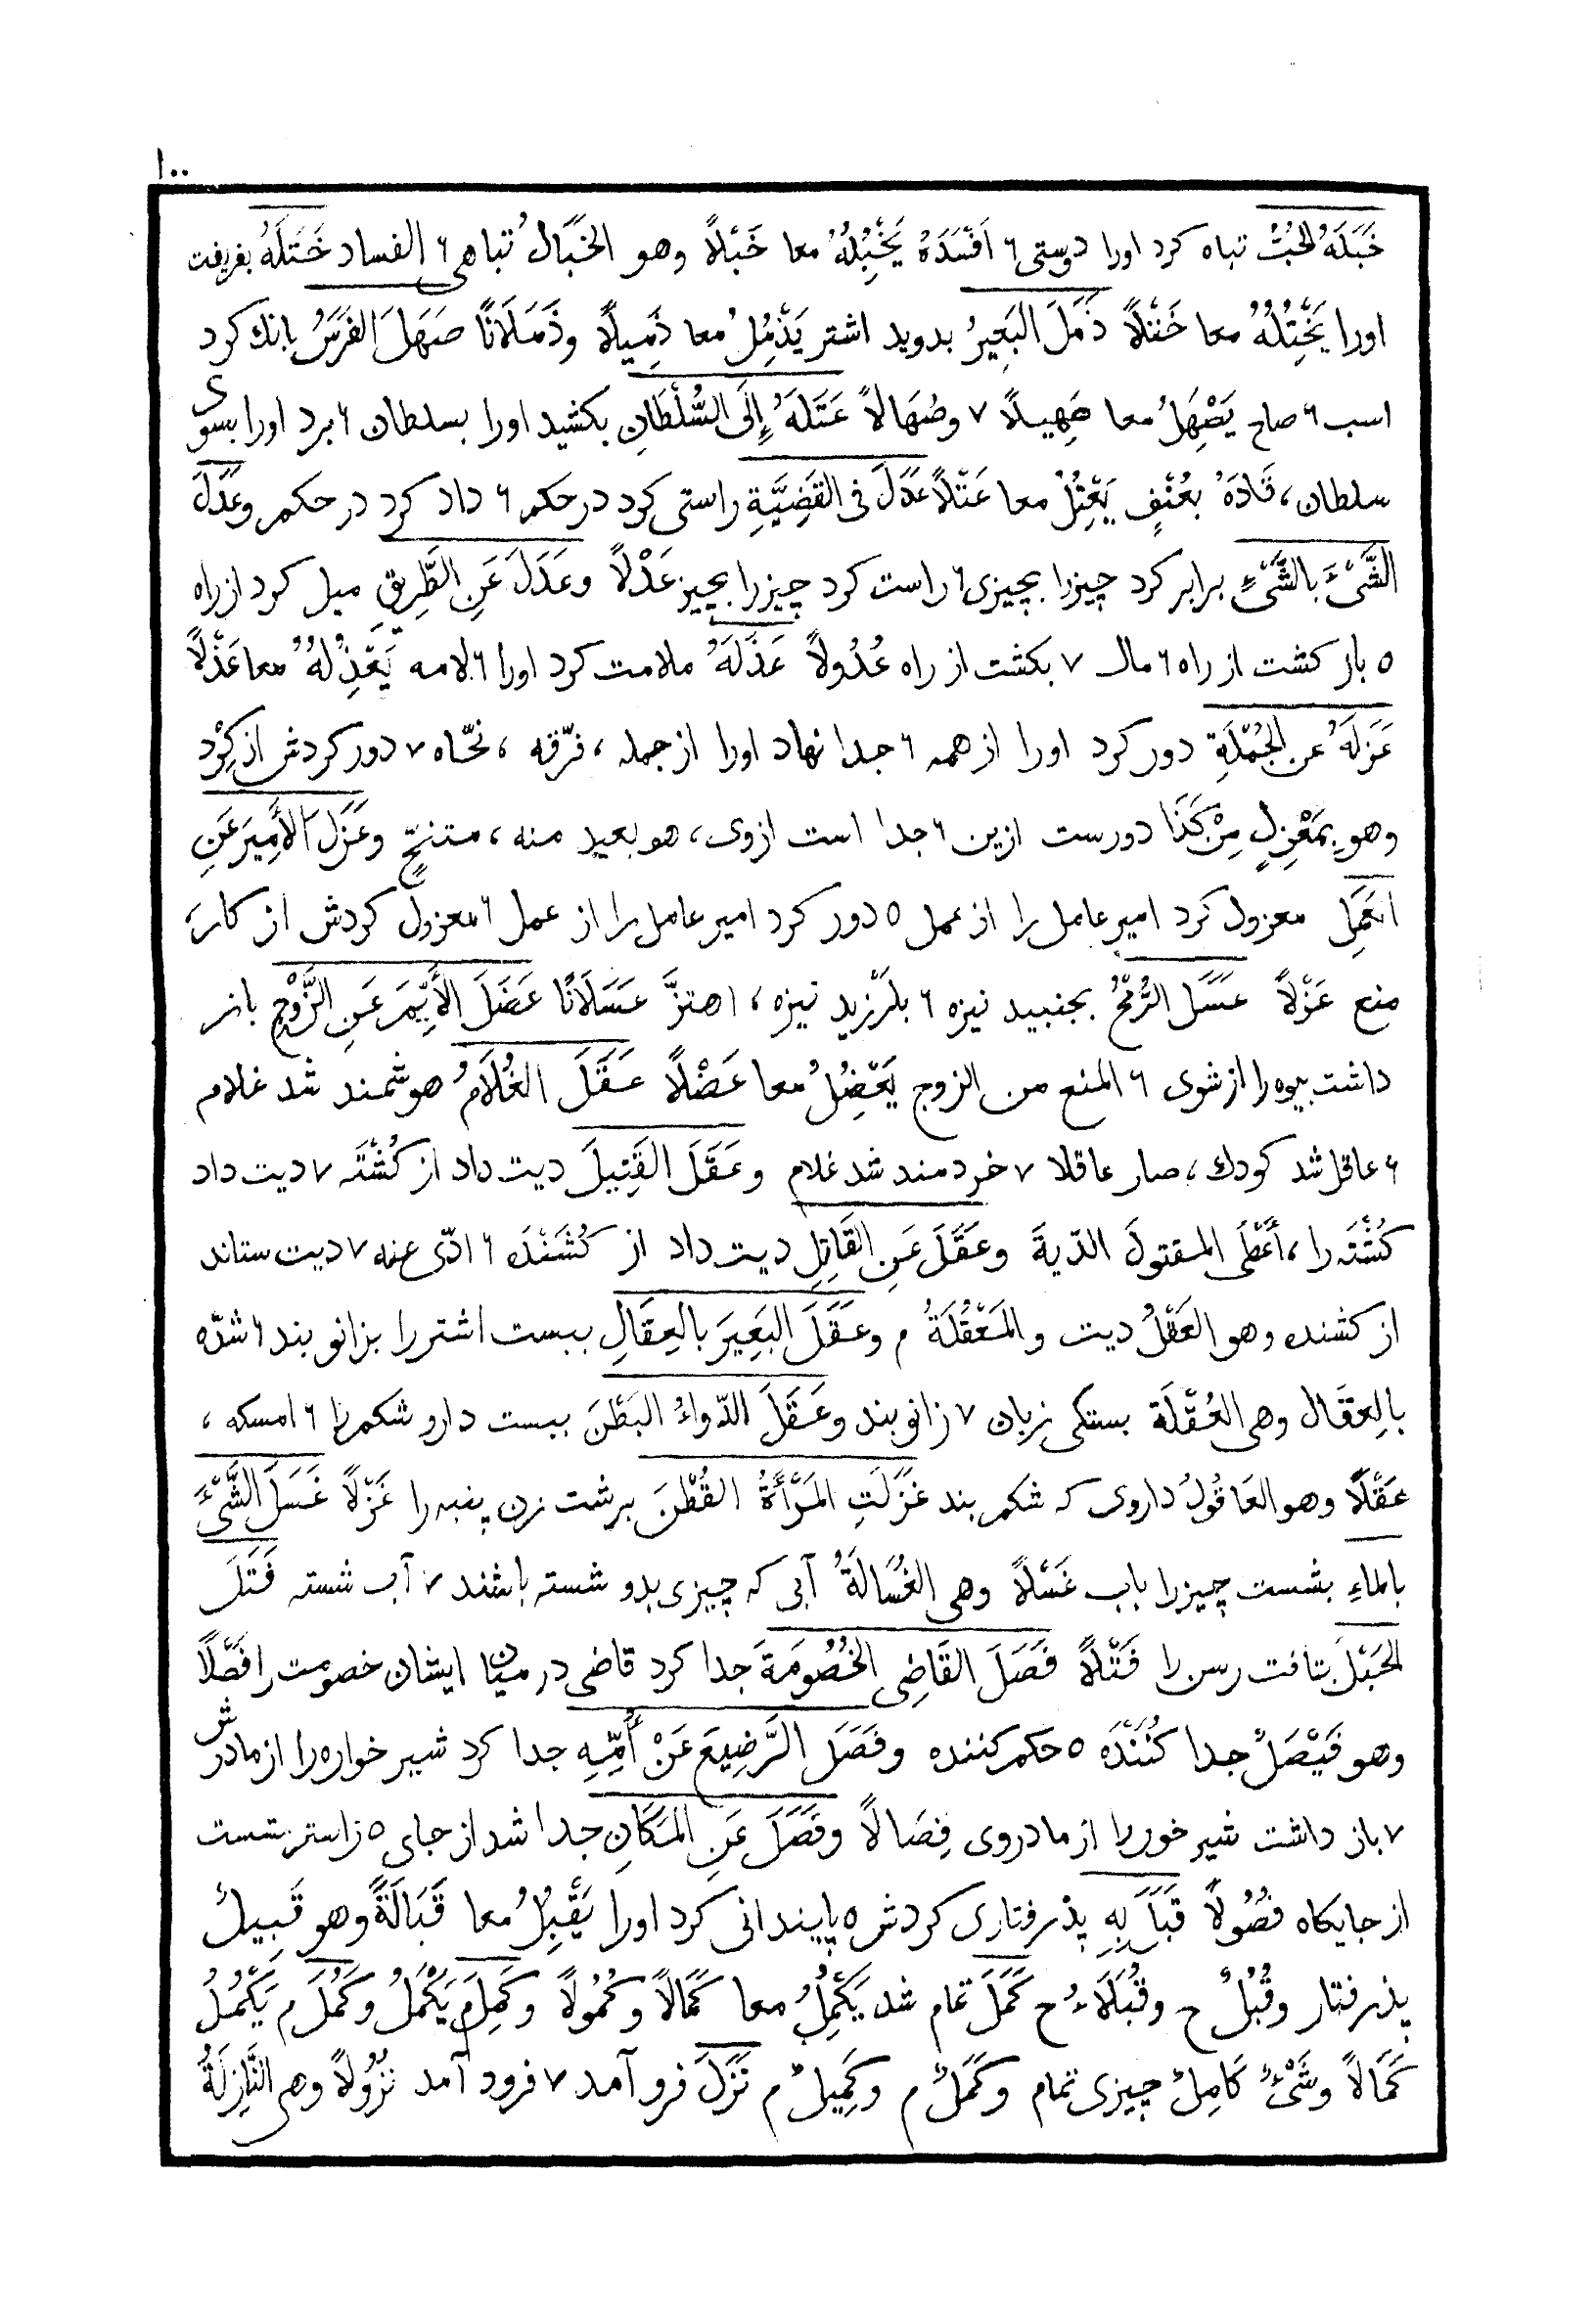 ١٠٠
خَبَلَهُ الحُبُّ تباه کرد اورا دوستی ٦ اَفْسَدَهُ یَخْبُِلُهُ معا خَبْلًا وهو الخَبَالُ تباهی ٦ الفساد خَتَلَهُ بفریفت
اورا یَخْتُِلُهُ معا خَتْلًا ذَمَلَ البَعِیرُ بدوید اشتر یَذْمُِلُ معا ذَمِیلًا وذَمَلَانًا صَهَلَ الفَرَسُ بانك کرد
اسب ٦ صاح یَصْهَِلُ معا صَهِیلًا ٧ وصُهَالًا عَتَلَهُ إِلَی السُّلْطَانِ بکشید اورا بسلطان ٦ برد اورا بسوی
سلطان، قَادَهُ بعُنْفٍ یَعْتُِلُ معا عَتْلًا عَدَلَ فی القَضِیَّةِ راستی کرد در حکم ٦ داد کرد در حکم وعَدَلَ
الشَّیْءَ بالشَّیْءِ برابر کرد چیزرا بچیزی ٦ راست کرد چیزرا بچیز عَدْلًا وعَدَلَ عَنِ الطَّرِیقِ میل کرد از راه
٥ باز کشت از راه ٦ مال ٧ بکشت از راه عُدُولًا عَذَلَهُ ملامت کرد اورا ٦ لامه یَعْذُِلُهُ معا عَذْلًا
عَزَلَهُ عن الجُمْلَةِ دور کرد اورا از همه ٦ جدا نهاد اورا از جمله، فرّقه، نحّاه ٧ دور کردش از کِرْد
وهو بِمَعْزِلٍ مِنْ کَذَا دورست ازین ٦ جدا است ازوی، هو بعید منه، متنحٍّ وعَزَلَ الأَمِیرَ عَنِ
العَمَلِ معزول کرد امیر عامل را از عمل ٥ دور کرد امیر عامل را از عمل ٦ معزول کردش از کار،
منع عَزْلًا عَسَلَ الرُّمْحُ بجنبید نیزه ٦ بلرزید نیزه، اهتزَّ عَسَلَانًا عَضَلَ الأَیِّمَ عَنِ الزَّوْجِ باز
داشت بیوه را از شوی ٦ المنع من الزوج یَعْضُِلُ معا عَضْلًا عَقَلَ الغُلَامُ هوشمند شد غلام
٦ عاقل شد کودك، صار عاقلا ٧ خردمند شد غلام وعَقَلَ القَتِیلَ دیت داد از کُشْتَه ٧ دیت داد
کُشْتَه را، أَعْطَی المقتولَ الدّیةَ وعَقَلَ عَنِ القَاتِلِ دیت داد از کُشَنْدَه ٦ ادّی عنه ٧ دیت ستاند
از کشنده وهو العَقْلُ دیت والمَعْقُلَةُ م وعَقَلَ البَعِیرَ بالعِقَالِ ببست اشتررا بزانو بند ٦ شدّه
بالعِقَال وهی العُقْلَة بستکی زبان ٧ زانو بند وعَقَلَ الدّواءُ البَطْنَ ببست دارو شکم را ٦ امسکه،
عَقْلًا وهو العَاقُولُ داروی که شکم بند غَزَلَتِ المَرْأَةُ القُطْنَ برشت زن پنبه را غَزْلًا غَسَلَ الشَّیْءَ
بالماءِ بشست چیزرا باب غَسْلًا وهی الغُسَالَةُ آبی که چیزی بدو شسته باشند ٧ آب شسته فَتَلَ
الحَبْلَ بتافت رسن را فَتْلًا فَصَلَ القَاضِی الخُصُومَةَ جدا کرد قاضی در میان ایشان خصومت را فَصْلًا
وهو فَیْصَلٌ جدا کُنَنْدَه ٥ حکم کننده وفَصَلَ الرَّضِیعَ عَنْ أُمِّهِ جدا کرد شیر خواره را از مادرش
٧ باز داشت شیر خوررا از مادروی فِصَالًا وفَصَلَ عَنِ المَکَانِ جدا شد از جای ٥ زاستر نشست
از جایکاه فصُولًا قَبَلَ بِهِ پذرفتاری کردش ٥ پایندانی کرد اورا یَقْبُِلُ معا قَبَالَةً وهو قَبِیلٌ
پذرفتار وقُبُلٌ ح وقُبَلَاءُ ح کَمَلَ تمام شد یَکْمُِلُ معا کَمَالًا وکُمُولًا وکَمِلَ م یَکْمَلُ وکَمُلَ م یَکْمُلُ
کَمَالًا وشَیْءٌ کَامِلٌ چیزی تمام وکَمَلٌ م وکَمِیلٌ م نَزَلَ فرو آمد ٧ فرود آمد نُزُولًا وهی النَّازِلَةُ